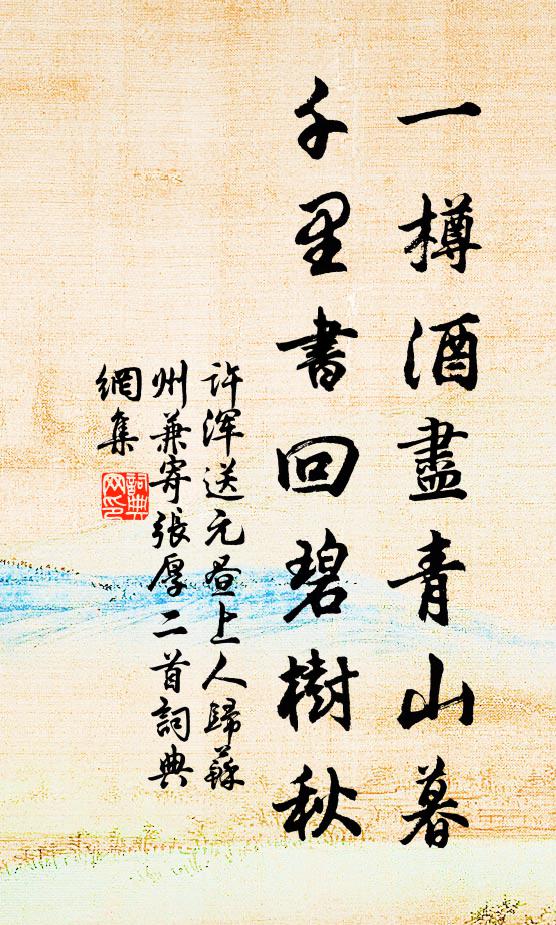 一樽酒盡青山暮
千里書回碧樹秋
許渾送元晝上人歸蘇
州兼寄張厚二首詞典
網集
詞典
网印